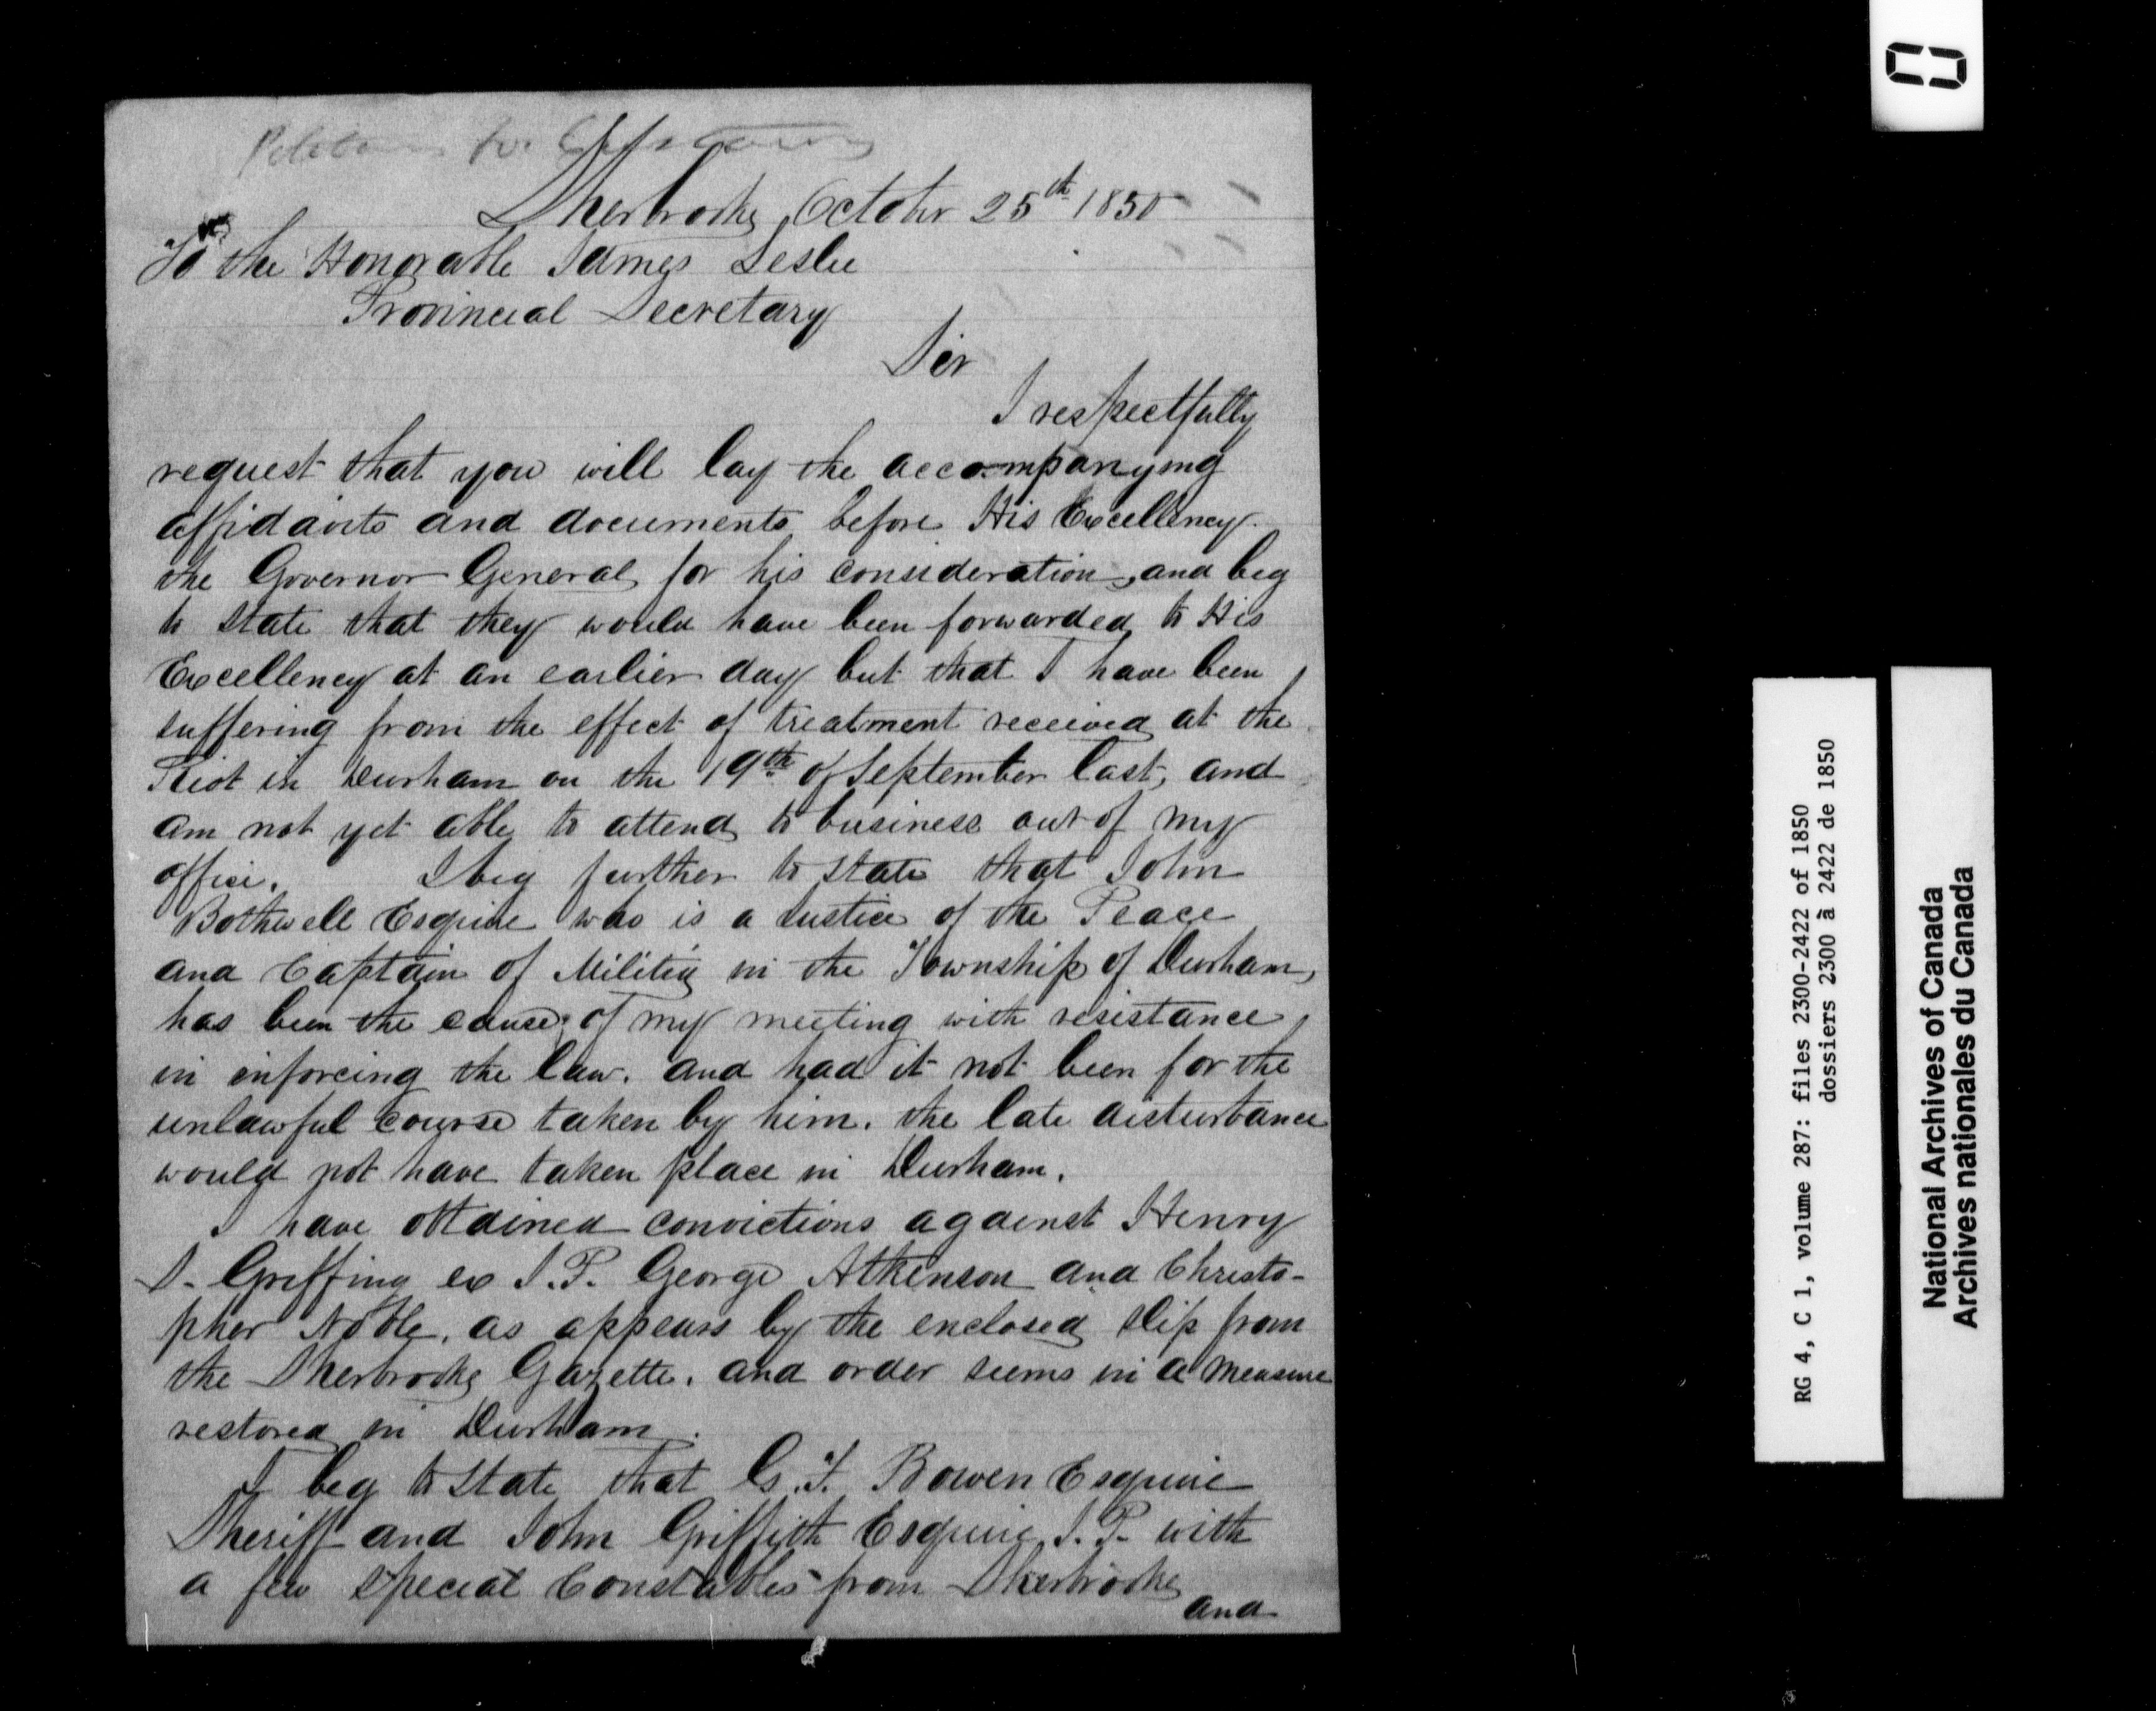 Sherbrooke October 25th 1850
To the Honorable James Leslie
Provincial Secretary
Sir
I respectfully
request that you will lay the accompanying
affidavits and documents before His Excellency
the Governor General for his consideration, and beg
to state that they would have been forwarded to His
Excellency at an earlier day but that I have been
suffering from the effect of treatment received at the
Riot in Durham on the 19th of September last, and
am not yet able to attend to business out of my
office. I beg further to state that John
Bothwell Esquire who is a Justice of the Peace
and Captain of Militia in the Township of Durham,
has been the cause of my meeting with resistance
in inforcing the law. and had it not been for the
unlawful course taken by him. the late disturbance
would not have taken place in Durham.
I have obtained convictions against Henry
S. Griffing ex J.P. George Atkenson and Christo-
pher Noble, as appears by the enclosed slip from
the Sherbrooke Gazette. and order seems in a measure
restored in Durham.
I beg to state that G. F. Bowen Esquire
Sheriff and John Griffith Esquire J.P. with
a few special Constables from Sherbrooke
and
RG 4, C 1, volume 287: files 2300-2422 of 1850
dossiers 2300 à 2422 de 1850
National Archives of Canada
Archives nationales du Canada